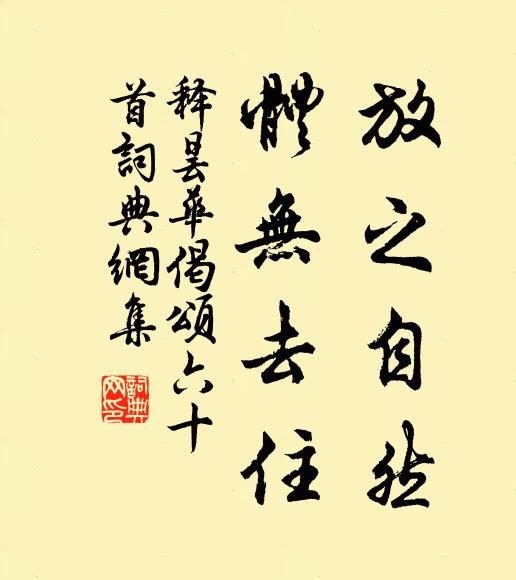 放之自然
體無去住
释昙華偈頌六十
首詞典網集
詞典网印